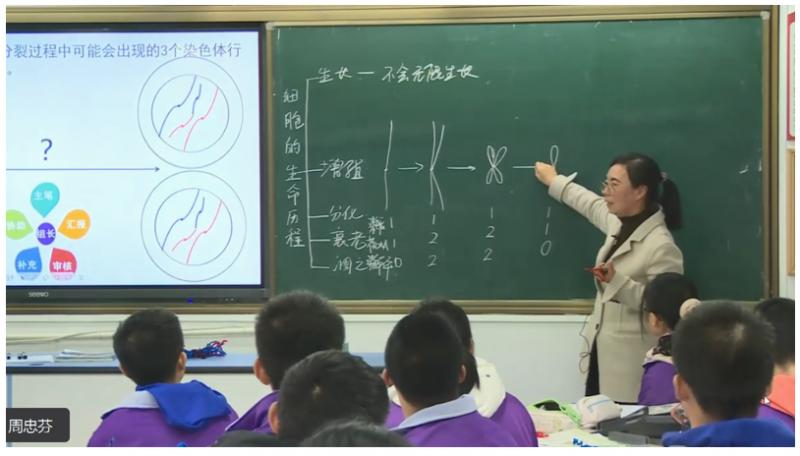 分裂过程中可能会出现的3个染色体行
?
主笔
协助
汇报
组长
补充
审核
seewo
细胞的生命历程
生长 — 不会无限生长
增殖
分化
衰老
凋亡
1 1 1 1
1 2 2 1
0 2 2 0
周忠芬